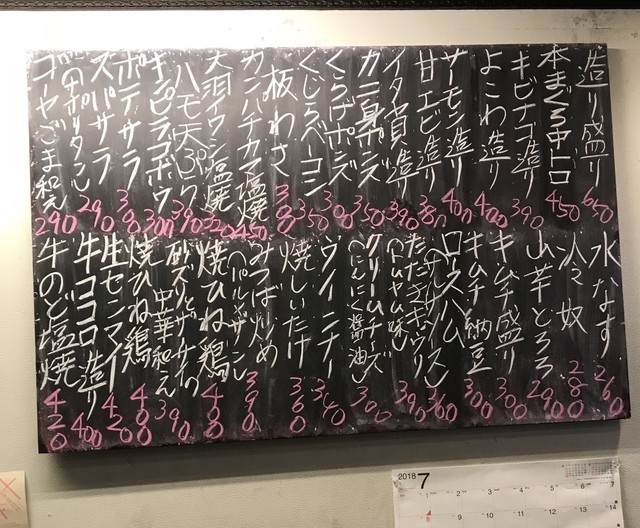 造り盛り 650
本まぐろ中トロ 450
キビナゴ造り 390
よこわ造り 400
サーモン造り 400
甘エビ造り 380
イタヤ貝造り 390
カニ身ポンズ 350
くらげポンズ 300
くじらベーコン 350
板わさ 380
カンパチカマ塩焼 450
大羽イワシ塩焼 320
ハモ天ぷら 390
キンピラゴボウ 300
ポテサラ 380
スパサラ 290
ゴーヤごま和え 290
水なす 260
冷奴 280
山芋とろろ 290
キムチ盛り 300
キムチ納豆 300
ロースハム 360
たたきキウリ 390
(トムヤム味)
クリームチーズ 300
(にんにく醤油)
ウインナー 340
焼しいたけ 360
みつば炒め 390
焼ひね鶏 400
砂ズリとザーサイの
中華和え 390
焼ひね鶏 400
生センマイ 420
牛ココロ造り 400
牛のど塩焼 420
2018 7
1 2 3 4 5 6 7
8 9 10 11 12 13 14